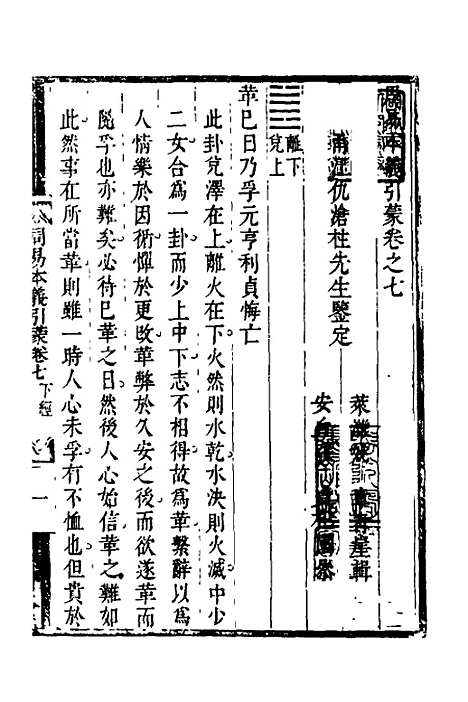 周易本義引蒙卷之七
甬江仇滄柱先生鑒定
萊
輯
安
離下
兌上
革巳日乃孚元亨利貞悔亡
此卦兌澤在上離火在下火然則水乾水決則火滅中少
二女合爲一卦而少上中下志不相得故爲革繫辭以爲
人情樂於因循憚於更改革弊於久安之後而欲遂革而
卽孚也亦難矣必待巳革之日然後人心始信革之難如
此然事在所當革則雖一時人心未孚有不恤也但貴於
周易本義引蒙卷七 下經
一